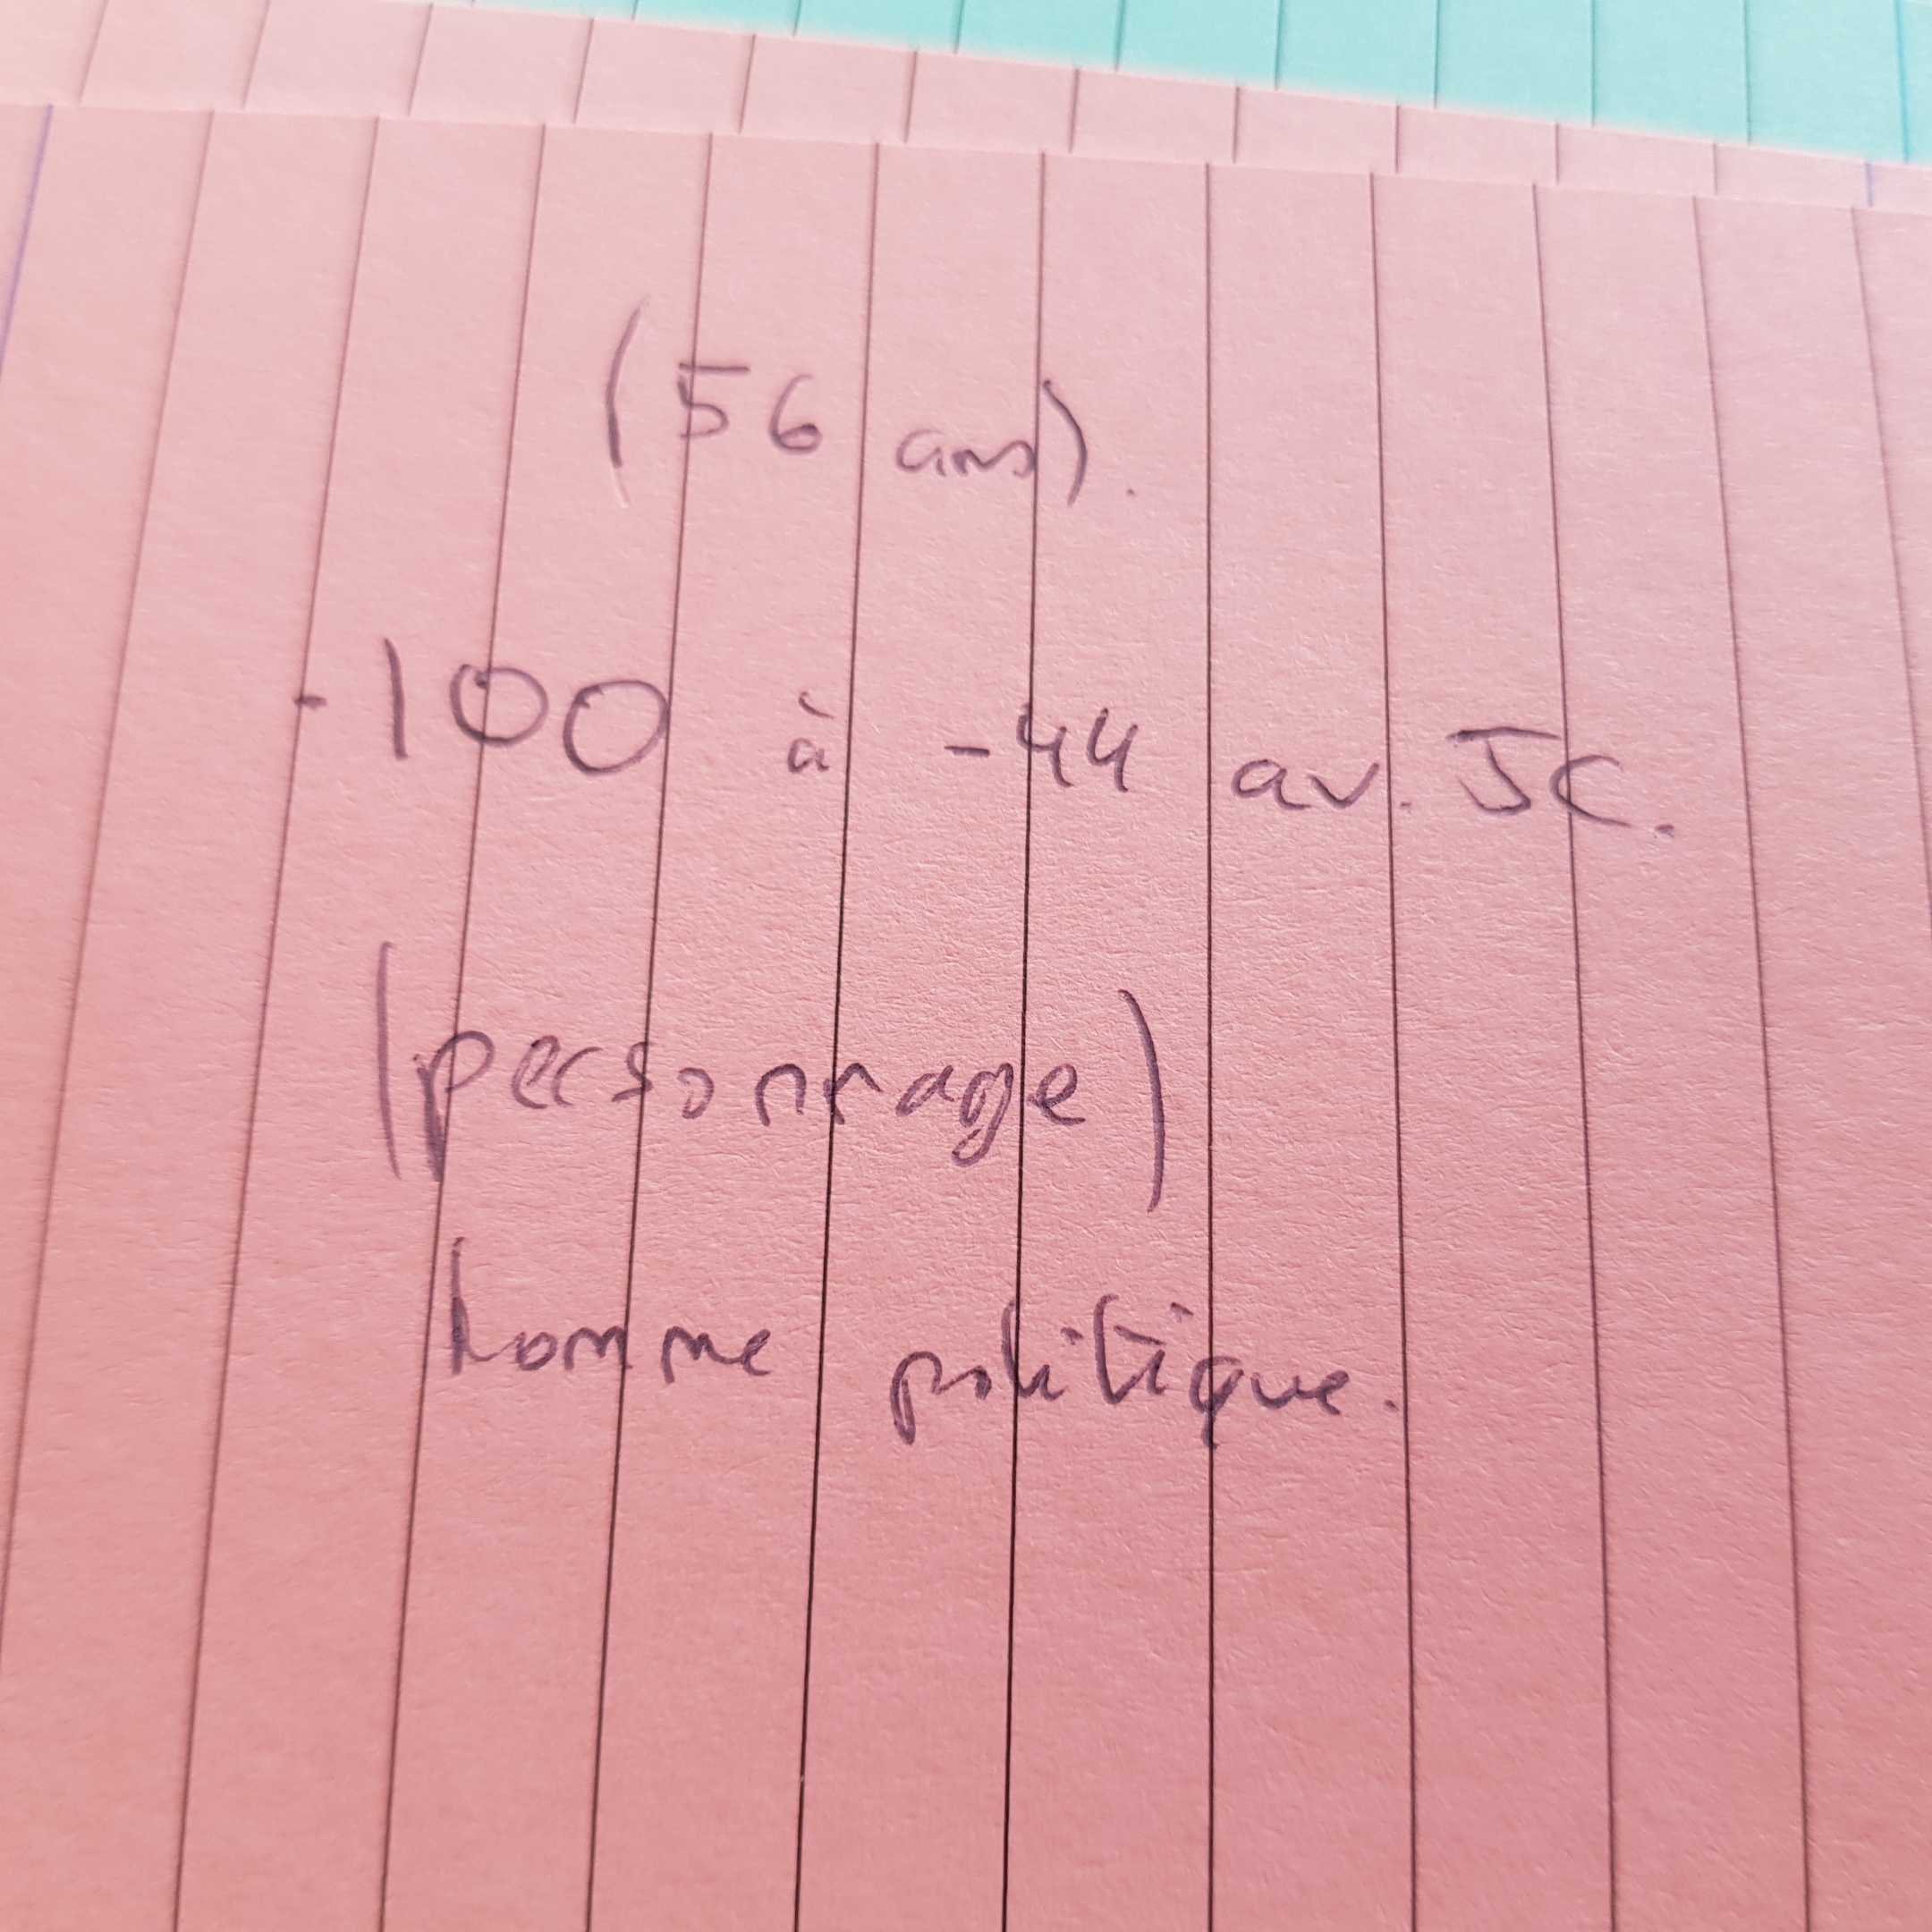 (56 ans).
-100 à -44 av. JC.
(personnage)
homme politique.